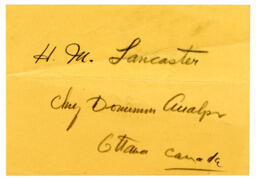 H. M. Lancaster
Chief Dominion Analyst
Ottawa Canada